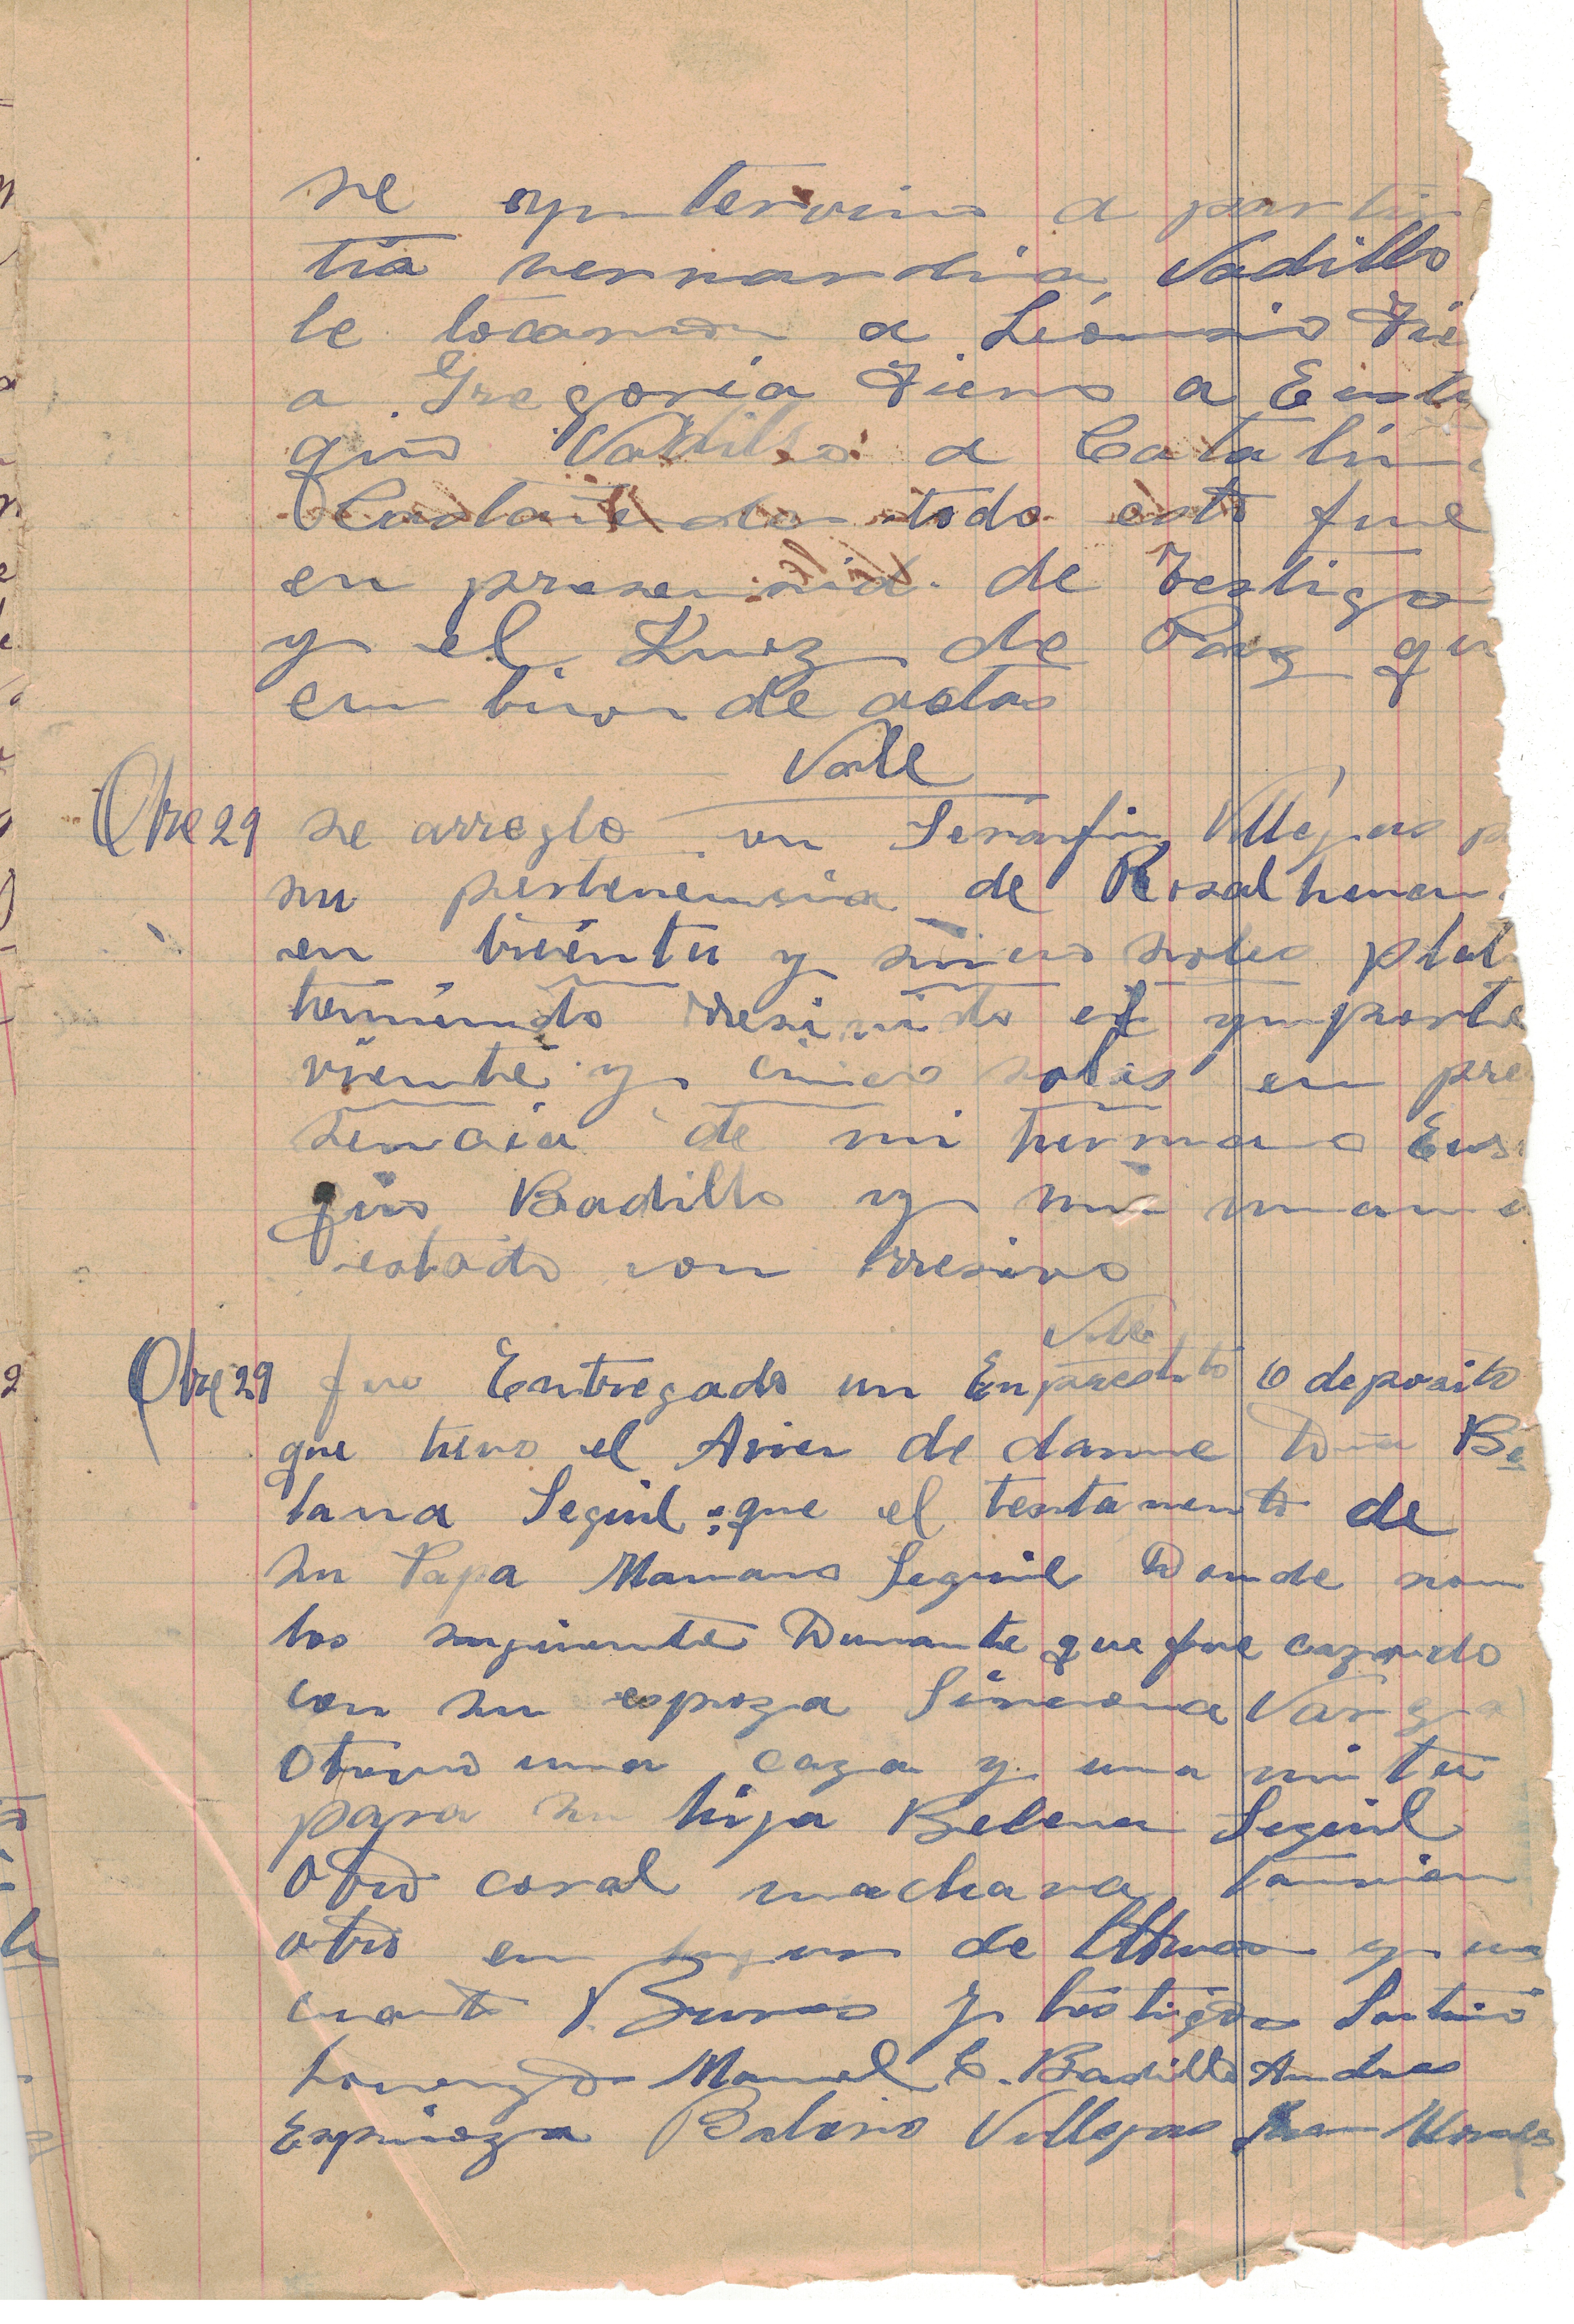 se yntervino a partir
tia vernardia Vadillo
le tocaron a Leoncio Fie
a Gregoria Fierro a Eusta
quio Vadillo a Catalin
Castañeda todo esto fue
en presencia de testigo
y el Kuez de Paz qu
en libro de actas
Vale
Obre 29 se arreglo con Serafin Villegas p
su pertenencia de Rosal
en treinta y sinco soles plat
teniendo rresivido el ymporte
viente y cinco soles en pre
sencia de mi hermano Eus
quio Badillo y mi mama
estado con rresivo
Vale
Obre 29 fue Entregado un Enprestito o deposito
que tuvo el de danne Be
lana Seguil que el testamento de
su Papa Mariano Seguil Donde son
los siguiente Durante que fue cazado
con su espoza Simeona Varga
Otorvo una caza y una mita
para su hija Belena Seguil
Otro coral machava tamvien
otro en lugar de y un
cuarto Burro y testigos
Lorenzo Manuel C. Badillo Andres
Espinoza Balerio Villegas Juan Morales